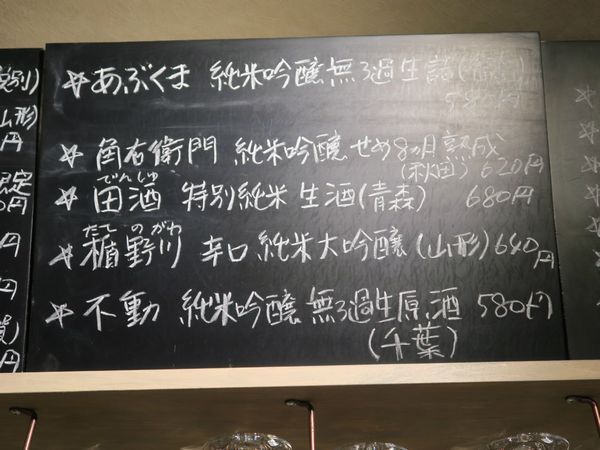 ☆あぶくま 純米吟醸無ろ過生詰(福島)
580円
☆ 角右衛門 純米吟醸 せめ8ヵ月熟成
(秋田) 620円
でんしゅ
☆ 田酒 特別純米 生酒(青森) 680円
たて の がわ
☆ 楯野川 辛口純米大吟醸(山形)640円
☆ 不動 純米吟醸 無ろ過生原酒 580円
(千葉)
別)
山形)
円
限定
円
円
円
)
円